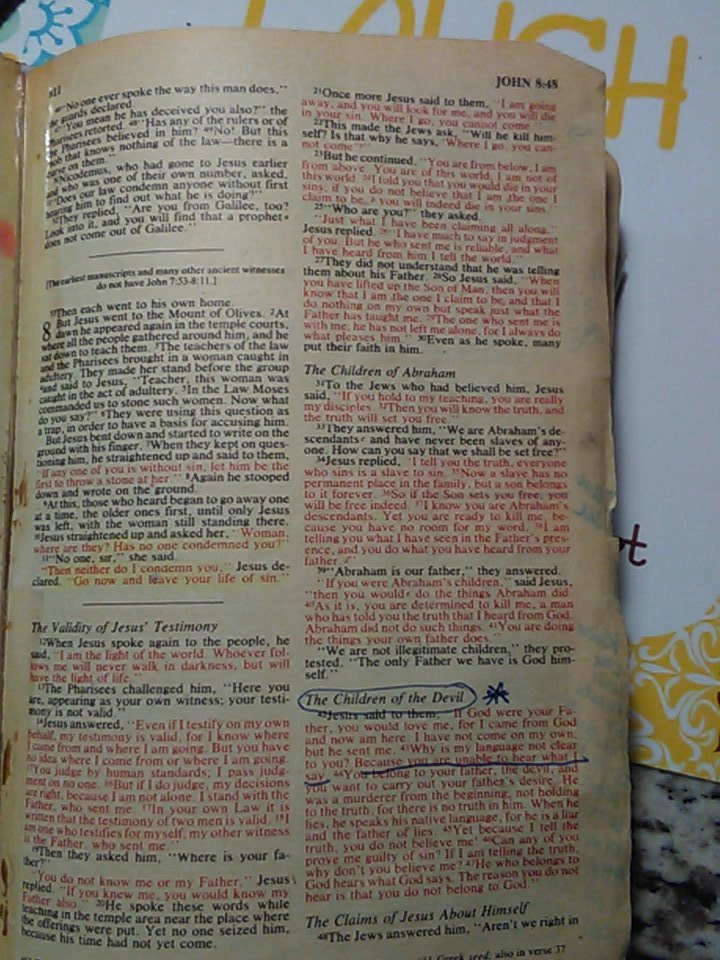 LAUGH
811
JOHN 8:48
46"No one ever spoke the way this man does,"
the guards declared.
47"You mean he has deceived you also?" the
Pharisees retorted. 48"Has any of the rulers or of
the Pharisees believed in him? 49No! But this
mob that knows nothing of the law—there is a
curse on them."
50Nicodemus, who had gone to Jesus earlier
and who was one of their own number, asked,
51"Does our law condemn anyone without first
hearing him to find out what he is doing?"
52They replied, "Are you from Galilee, too?
Look into it, and you will find that a prophet
does not come out of Galilee."
[The earliest manuscripts and many other ancient witnesses
do not have John 7:53-8:11.]
53Then each went to his own home.
8 But Jesus went to the Mount of Olives. 2At
dawn he appeared again in the temple courts,
where all the people gathered around him, and he
sat down to teach them. 3The teachers of the law
and the Pharisees brought in a woman caught in
adultery. They made her stand before the group
4and said to Jesus, "Teacher, this woman was
caught in the act of adultery. 5In the Law Moses
commanded us to stone such women. Now what
do you say?" 6They were using this question as
a trap, in order to have a basis for accusing him.
But Jesus bent down and started to write on the
ground with his finger. 7When they kept on ques-
tioning him, he straightened up and said to them,
"If any one of you is without sin, let him be the
first to throw a stone at her." 8Again he stooped
down and wrote on the ground.
9At this, those who heard began to go away one
at a time, the older ones first, until only Jesus
was left, with the woman still standing there.
10Jesus straightened up and asked her, "Woman,
where are they? Has no one condemned you?"
11"No one, sir," she said.
"Then neither do I condemn you," Jesus de-
clared. "Go now and leave your life of sin."
The Validity of Jesus' Testimony
12When Jesus spoke again to the people, he
said, "I am the light of the world. Whoever fol-
lows me will never walk in darkness, but will
have the light of life."
13The Pharisees challenged him, "Here you
are, appearing as your own witness; your testi-
mony is not valid."
14Jesus answered, "Even if I testify on my own
behalf, my testimony is valid, for I know where
I came from and where I am going. But you have
no idea where I come from or where I am going.
15You judge by human standards; I pass judg-
ment on no one. 16But if I do judge, my decisions
are right, because I am not alone. I stand with the
Father, who sent me. 17In your own Law it is
written that the testimony of two men is valid. 18I
am one who testifies for myself; my other witness
is the Father, who sent me."
19Then they asked him, "Where is your fa-
ther?"
"You do not know me or my Father," Jesus
replied. "If you knew me, you would know my
Father also." 20He spoke these words while
teaching in the temple area near the place where
the offerings were put. Yet no one seized him,
because his time had not yet come.
21Once more Jesus said to them, "I am going
away, and you will look for me, and you will die
in your sin. Where I go, you cannot come."
22This made the Jews ask, "Will he kill him-
self? Is that why he says, 'Where I go, you can-
not come'?"
23But he continued, "You are from below; I am
from above. You are of this world; I am not of
this world. 24I told you that you would die in your
sins; if you do not believe that I am the one I
claim to be, you will indeed die in your sins."
25"Who are you?" they asked.
"Just what I have been claiming all along,"
Jesus replied. 26"I have much to say in judgment
of you. But he who sent me is reliable, and what
I have heard from him I tell the world."
27They did not understand that he was telling
them about his Father. 28So Jesus said, "When
you have lifted up the Son of Man, then you will
know that I am the one I claim to be, and that I
do nothing on my own but speak just what the
Father has taught me. 29The one who sent me is
with me; he has not left me alone, for I always do
what pleases him." 30Even as he spoke, many
put their faith in him.
The Children of Abraham
31To the Jews who had believed him, Jesus
said, "If you hold to my teaching, you are really
my disciples. 32Then you will know the truth, and
the truth will set you free."
33They answered him, "We are Abraham's de-
scendants and have never been slaves of any-
one. How can you say that we shall be set free?"
34Jesus replied, "I tell you the truth, everyone
who sins is a slave to sin. 35Now a slave has no
permanent place in the family, but a son belongs
to it forever. 36So if the Son sets you free, you
will be free indeed. 37I know you are Abraham's
descendants. Yet you are ready to kill me, be-
cause you have no room for my word. 38I am
telling you what I have seen in the Father's pres-
ence, and you do what you have heard from your
father."
39"Abraham is our father," they answered.
"If you were Abraham's children," said Jesus,
"then you would do the things Abraham did.
40As it is, you are determined to kill me, a man
who has told you the truth that I heard from God.
Abraham did not do such things. 41You are doing
the things your own father does."
"We are not illegitimate children," they pro-
tested. "The only Father we have is God him-
self."
The Children of the Devil
42Jesus said to them, "If God were your Fa-
ther, you would love me, for I came from God
and now am here. I have not come on my own;
but he sent me. 43Why is my language not clear
to you? Because you are unable to hear what I
say. 44You belong to your father, the devil, and
you want to carry out your father's desire. He
was a murderer from the beginning, not holding
to the truth, for there is no truth in him. When he
lies, he speaks his native language, for he is a liar
and the father of lies. 45Yet because I tell the
truth, you do not believe me! 46Can any of you
prove me guilty of sin? If I am telling the truth,
why don't you believe me? 47He who belongs to
God hears what God says. The reason you do not
hear is that you do not belong to God."
The Claims of Jesus About Himself
48The Jews answered him, "Aren't we right in
Greek seed; also in verse 37